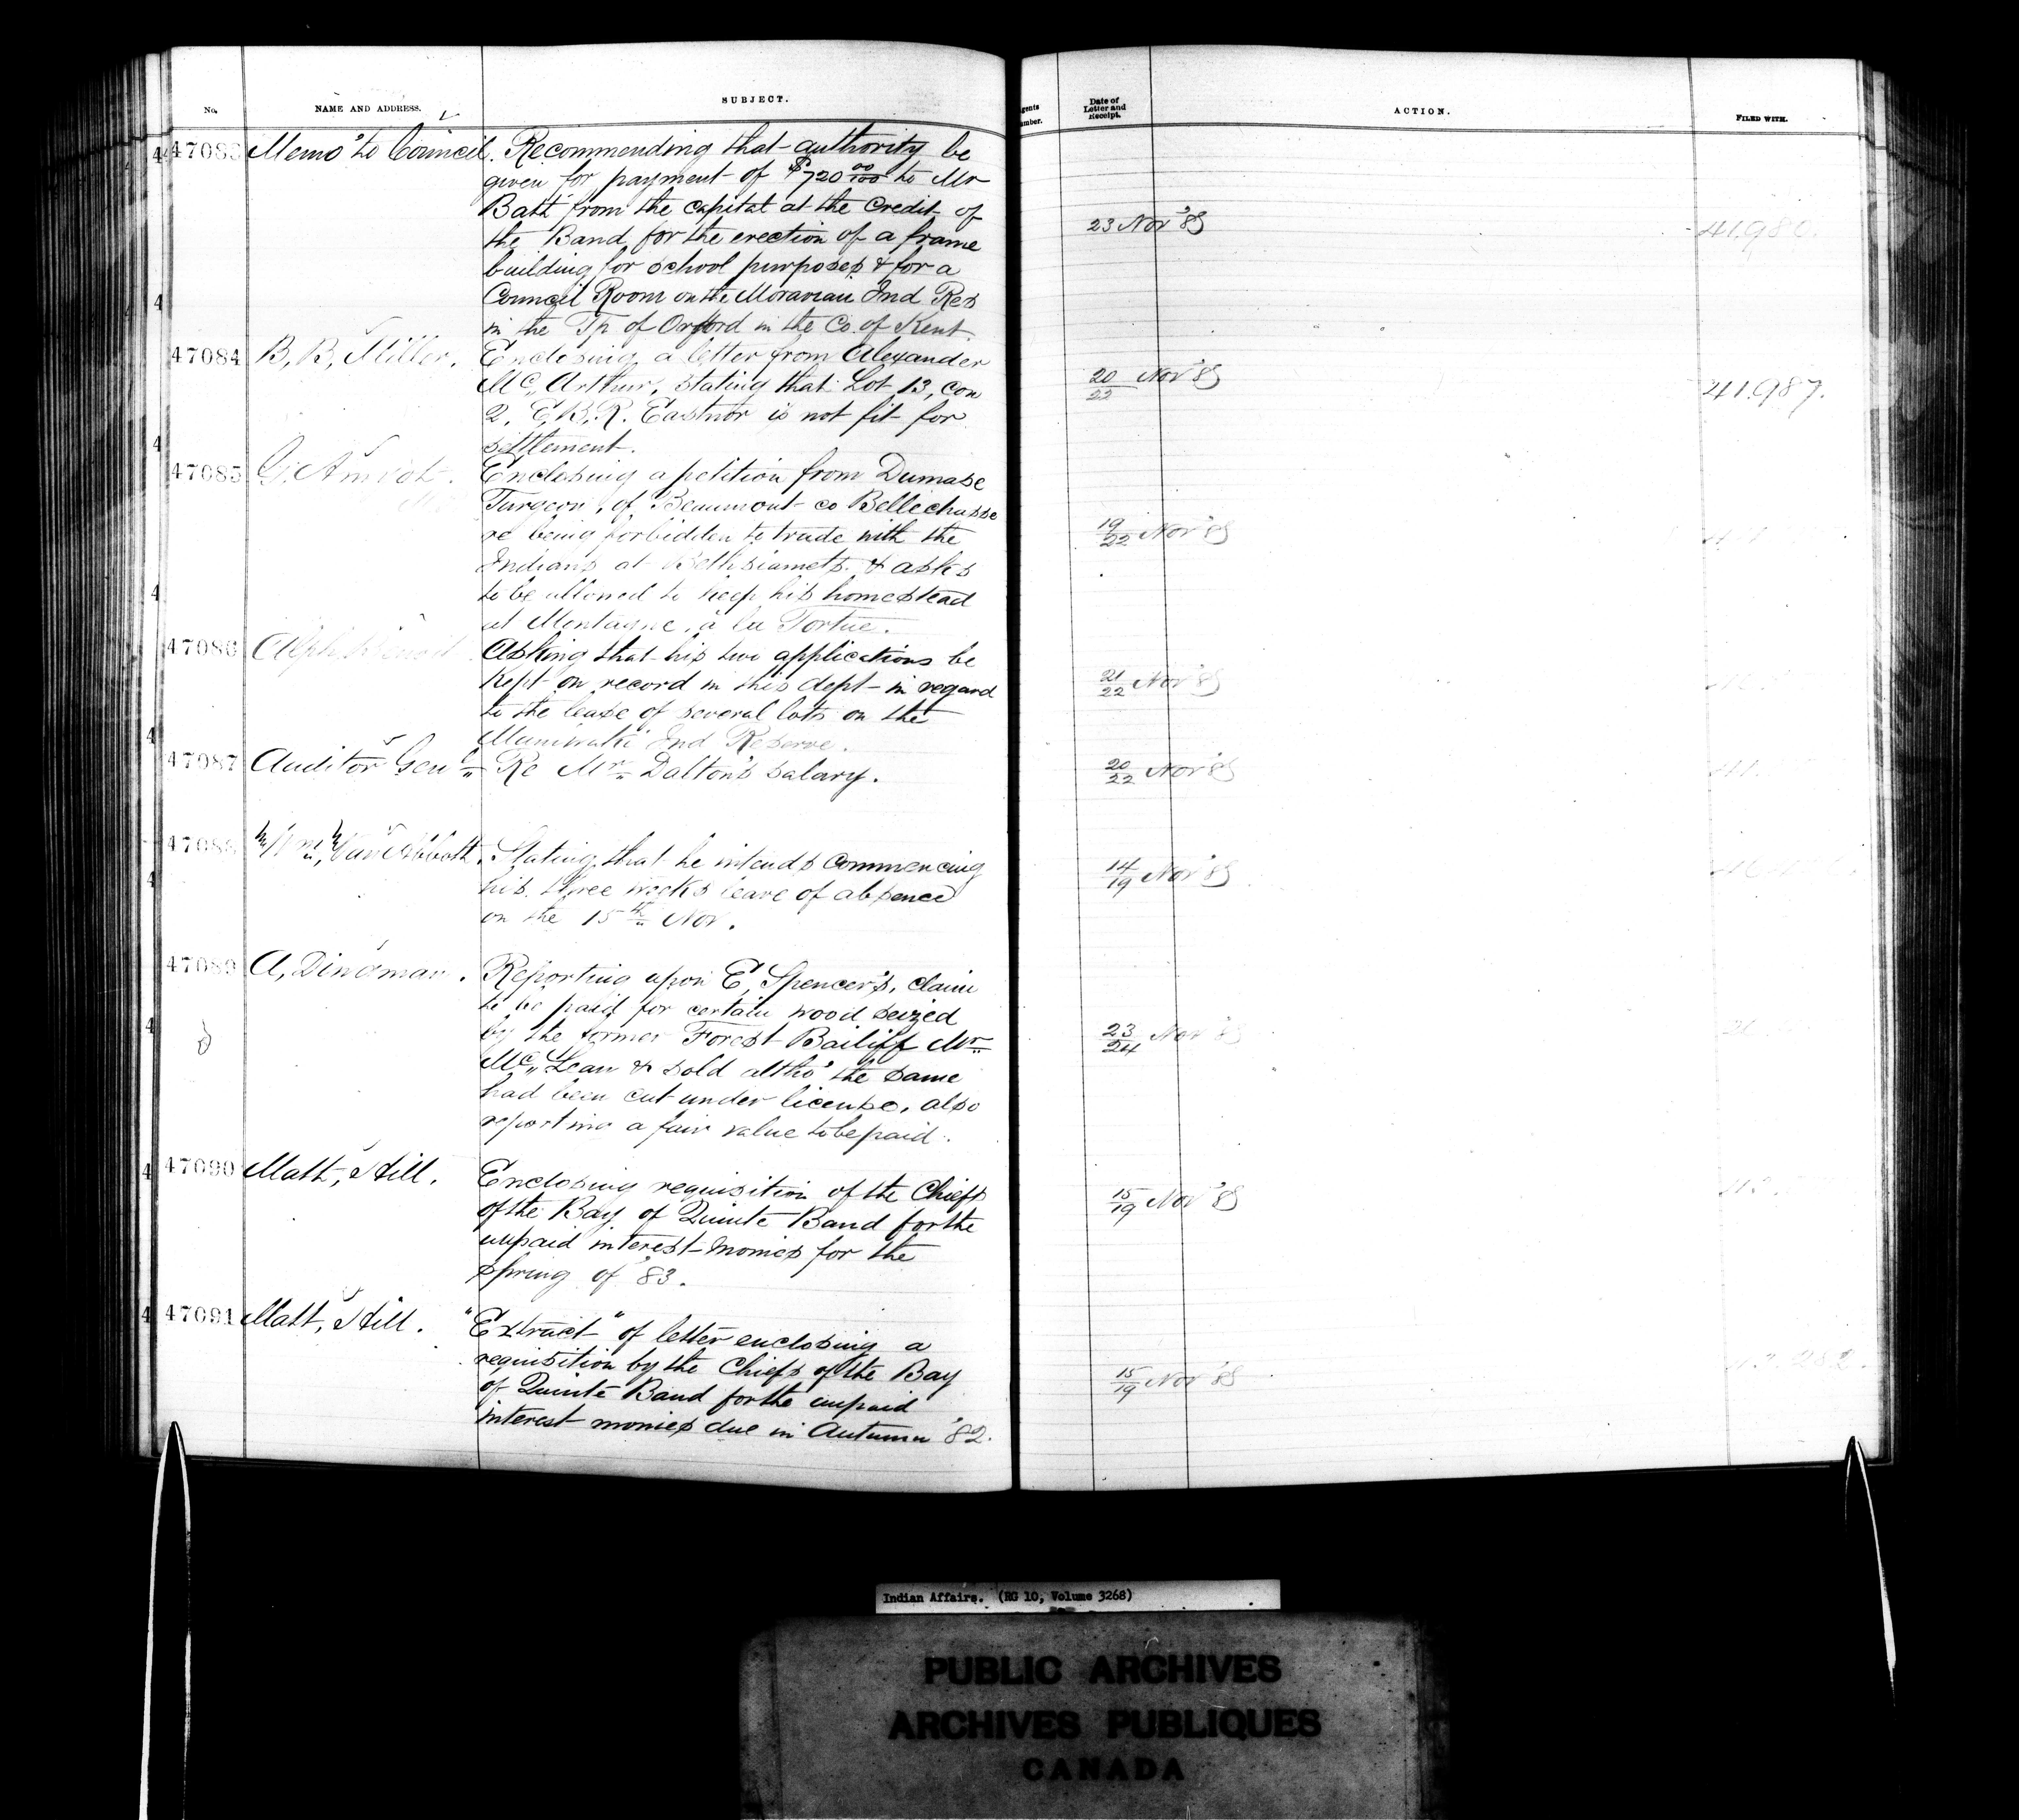 No.
NAME AND ADDRESS.
SUBJECT.
Date of
Letter and
Receipt.
ACTION.
FILED WITH.
47083 Memo to Council. Recommending that authority be
given for payment of $720 00/100 to Mr
Batt from the capital at the credit of
the Band for the erection of a frame 23 Nov '85 41,980.
building for school purposes & for a
Council Room on the Moravian Ind Res
in the Tp of Orford in the Co. of Kent.
47084 B, B, Miller. Enclosing a letter from Alexander
Mc Arthur, stating that Lot 13, con 20/22 Nov '85 41,987.
2, E,B,R. Eastnor is not fit for
settlement.
47085 G, Amyot. Enclosing a petition from Dumase
Turgeon, of Beaumont co Bellechasse
re being forbidden to trade with the 19/22 Nov '85
Indians at Bethsiamets & asks
to be allowed to keep his homestead
at Montagne, a la Tortue.
47086 Asking that his two applications be
kept on record in this dept in regard 21/22 Nov '85
to the lease of several lots on the
Maniwaki Ind Reserve.
47087 Auditor Genl Re Mr Dalton's salary. 20/22 Nov '85
47088 Wm, Van Abbott. Stating that he intends commencing
his three weeks leave of absence 14/19 Nov '85
on the 15th Nov.
47089 A, Dingman. Reporting upon E, Spencer's, claim
to be paid for certain wood seized
by the former Forest Bailiff Mr 23/24 Nov '85
Mc Lean & sold altho' the same
had been cut under license, also
reporting a fair value to be paid.
47090 Matt, Hill. Enclosing requisition of the Chiefs
of the Bay of Quinte Band for the 15/19 Nov '85
unpaid interest monies for the
spring of '83.
47091 Matt, Hill. "Extract" of letter enclosing a
requisition by the Chiefs of the Bay
of Quinte Band for the unpaid 15/19 Nov '85
interest monies due in Autumn '82.
Indian Affairs. (RG 10, Volume 3268)
PUBLIC ARCHIVES
ARCHIVES PUBLIQUES
CANADA